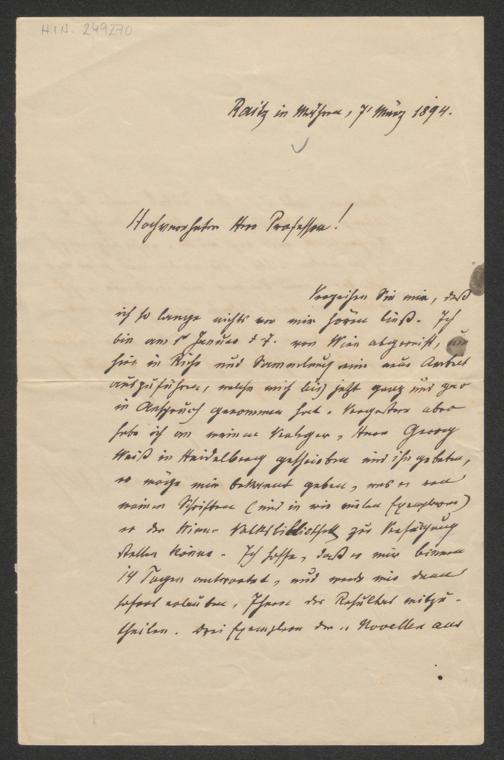 H.I.N. 249270
Raitz in Mähren, 7' März 1894.
Hochverehrter Herr Professor!
Verzeihen Sie mir, daß
ich so lange nichts von mir hören ließ. Ich
bin am Januar d. J. von Wien abgereist, um
hier in Ruhe und Sammlung eine neue Arbeit
auszuführen, welche mich bis jetzt ganz und gar
in Anspruch genommen hat. Vorgestern aber
habe ich an meinen Verleger, Herrn Georg
Weiß in Heidelberg geschrieben und ihn gebeten,
er möge mir bekannt geben, was er von
meinen Schriften (und in wie vielen Exemplaren)
er der Wiener Volksbibliothek zur Verfügung
stellen könne. Ich hoffe, daß er mir binnen
14 Tagen antwortet, und werde mir dann
sofort erlauben, Ihnen das Resultat mitzu-
theilen. Drei Exemplare der „Novellen aus